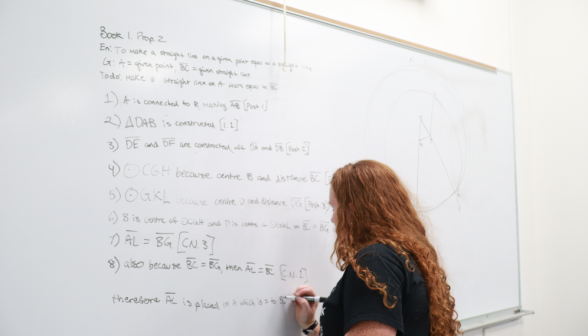 Book 1. Prop 2
En: To make a straight line on a given point equal to a straight line
G: A = given point, BC = given straight line
Todo: Make a straight line on A that's equal to BC
1) A is connected to B, making AB [Post. 1]
2) △DAB is constructed [1.1]
3) DE and DF are constructed, DA and DB [Post 2]
4) ⊙CGH because centre B and distance BC
5) ⊙GKL because centre D and distance DG [Post 3]
6) B is centre of and D is centre BC = BG
7) AL = BG [C.N. 3]
8) also because BC = BG, then AL = BC [C.N. 1]
therefore AL is placed on A which is = to BC